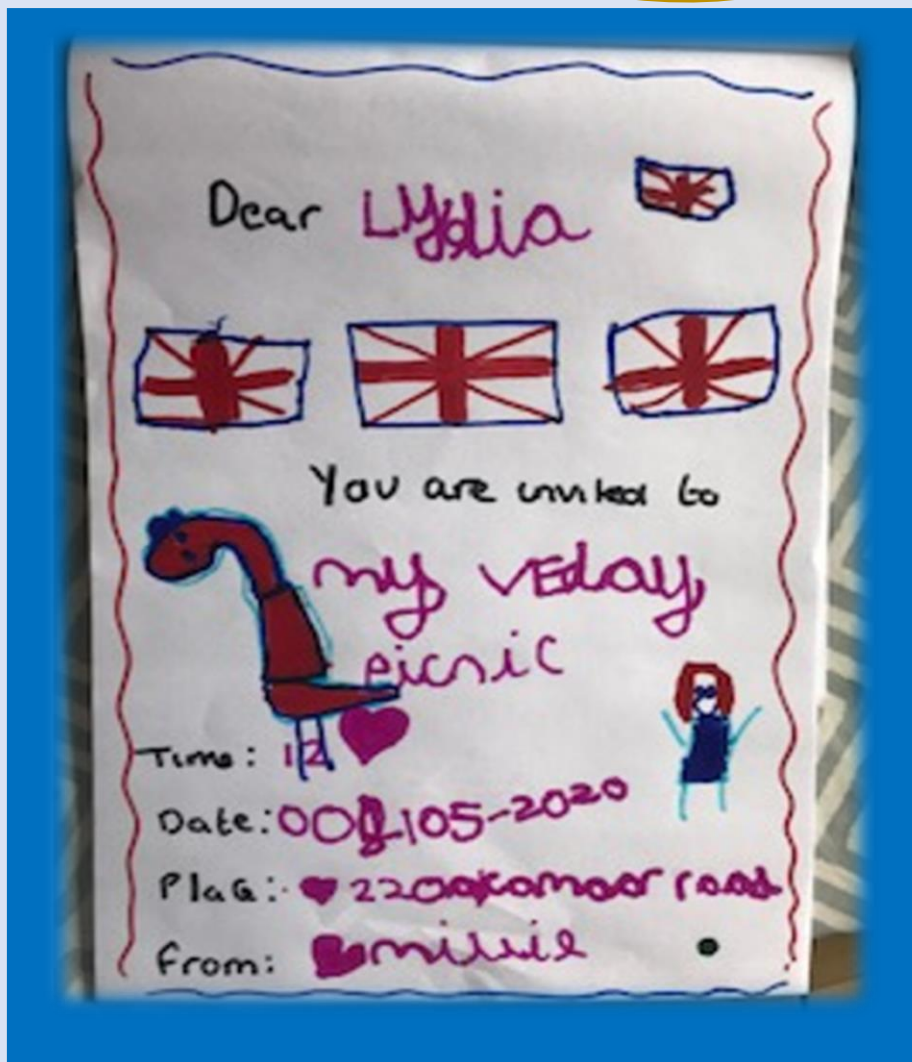 Dear Lydia
You are invited to
my VEday
picnic
Time: 12
Date: 008105-2020
Place: 22 Oakamoor road
From: millie